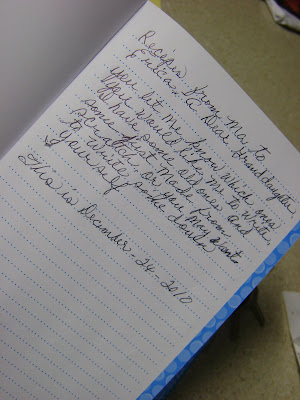 Recepies from Maw to
Erica, a Dear Granddaughter
You let me know which ones
you would like me to write,
I have some old ones and
some just made from
scratch, or you may want
to write some down
your self
This is December-24-2010